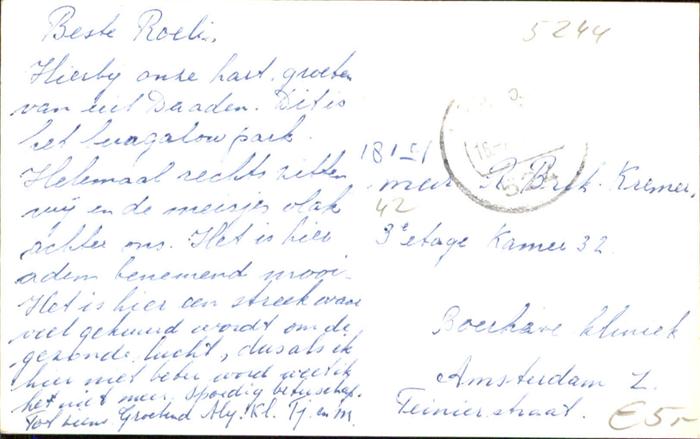 5244
Beste Roeli,
Hierby onze hart. groeten
van uit Daaden. Dit is
het bungalow park.
Helemaal rechts zitten
wij en de meisjes vlak
achter ons. Het is hier
adem benemend mooi.
Het is hier een streek waar
veel gekuurd wordt om de
gezonde lucht, dus als ik
hier niet beter word weet ik
het niet meer, spoedig beterschap.
Tot ziens Groetend Aly. Kl. Tj. en M.
mevr R. Brek-Kremer,
42
3e etage Kamer 32.
Boerhave kliniek
Amsterdam Z.
Teinierstraat.
€5,-